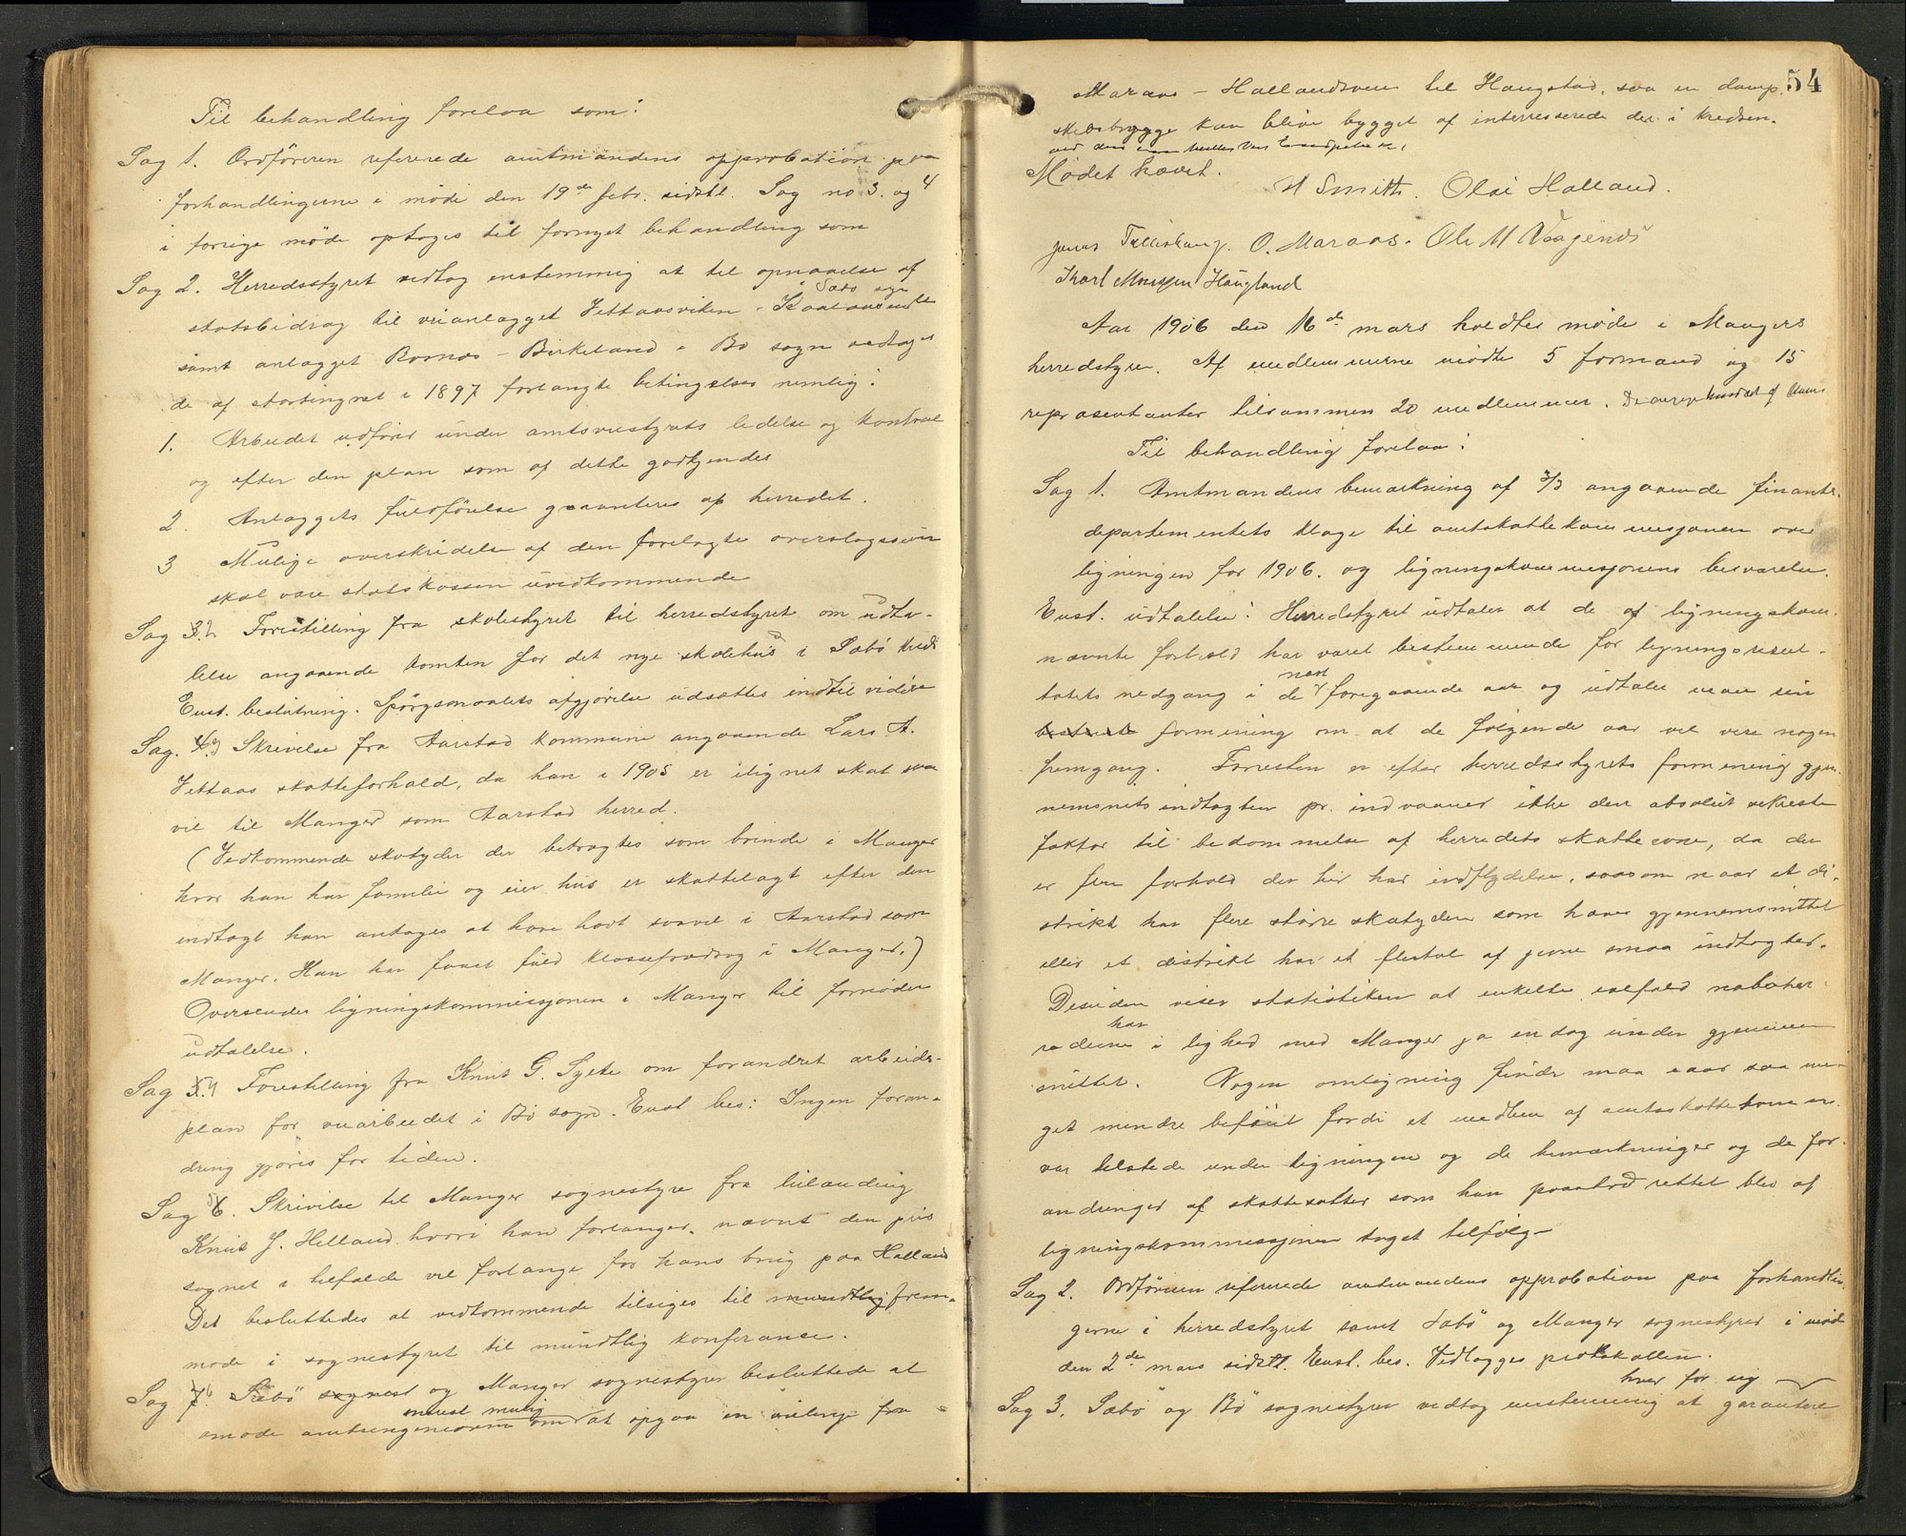 Til behandling forelaa som:
Sag 1. Ordføreren refererede amtmandens approbation paa
forhandlingerne i møde den 19de febr. sidstl. Sag no 3. og 4
i forrige møde optages til fornyet behandling som
Sag 2. Herredsstyret vedtog enstemmig at til opnaaelse af
statsbidrag til veianlægget Vettaasviken - i Sæbø sogn
samt anlægget Boanæs - Birkeland i Bø sogn vedtages
de af stortinget i 1897 forlangte betingelser nemlig:
1. Arbeidet udføres under amtsveistyrets ledelse og kontrol
og efter den plan som af dette godkjendes
2. Anlæggets fuldførelse garanteres af herredet.
3 Mulige overskridelse af den forelagte overslagssum
skal være statskassen uvedkommende
Sag 3. Forestilling fra skolestyret til herredstyret om udta-
lelse angaaende tomten for det nye skolehus i Sæbø kreds
Enst. beslutning. Spørgsmaalets afgjørelse udsættes indtil videre
Sag. Skrivelse fra Aarstad kommune angaaende Lars A.
Vettaas skatteforhold, da han i 1905 er ilignet skat saa
vel til Manger som Aarstad herred.
(Vedkommende skatyder der betragtes som boende i Manger
hvor han har familie og eier hus er skattelagt efter den
indtægt han antages at have havt saavel i Aarstad som
Manger. Han har faaet fuld klassefradrag i Manger.)
Oversendes ligningskommissjonen i Manger til fornøden
udtalelse.
Sag Forestilling fra Knut G. Sylte om forandret arbeids-
plan for veiarbeidet i Bø sogn. Enst bes: Ingen foran-
dring gjøres for tiden.
Sag 6. Skrivelse til Manger sognestyre fra
Knut J. Helland hvori han forlanger nævnt den pris
sognet i tilfælde vil forlange for hans brug paa Halland
Det besluttedes at vedkommende tilsiges til frem-
møde i sognestyret til mundtlig konferanse.
Sag 7. Sæbø sognest og Manger sognestyrer besluttede at
snarest mulig
anmode amtsingeniøren om at opgaa en veilinje fra
54
Maraas - Hallandsveen til Haugstad, saa en damp
skibsbrygge kan blive bygget af interresserede der i kredsen.
Mødet hævet.
H Smitt. Olai Halland.
O. Maraas. Ole M Vaagenes
Karl Monssen Haugland
Aar 1906 den 16de mars holdtes møde i Mangers
herredstyre. Af medlemmerne mødte 5 formænd og 15
repræsentanter tilsammen 20 medlemmer.
Til behandling forelaa:
Sag 1. Amtmandens bemærkning af 3/3 angaaende finants-
departementets klage til amtskattekommisjonen over
ligningen for 1906. og ligningskommisjonens besvarelse.
Enst. udtalelse: Herredstyret udtaler at de af ligningskom.
nævnte forhold har været bestemmende for ligningsresul-
næst
tatets nedgang i de foregaaende aar og udtaler man sin
formening om at de følgende aar vil vise nogen
fremgang. Forresten er efter herredsstyrets formening gjen-
nemsnitsindtægten pr. indvaaner ikke den absolut sikreste
faktor til bedømmelse af herredets skatteevne, da der
er flere forhold der her har indflydelse, saasom naar et di-
strikt har flere større skatydere som hæver gjennemsnittet
eller et distrikt har et flertal af jevne smaa indtægter.
Desuden viser statistiken at enkelte ialfald naboher-
har
rederne i lighed med Manger ja endog under gjennem
snittet. Nogen omligning findes maa i aar saa me-
get mindre beføiet fordi et medlem af amtsskattekomm
var tilstede under ligningen og de bemærkninger og de for-
andringer af skattesatser som han paabød rettet blev af
ligningskommissjonen taget tilfølge
Sag 2. Ordføreren refererede amtmandens approbation paa forhandlin-
gerne i herredstyret samt Sæbø og Manger sognestyrer i møde
den 2de mars sidstl. Enst. bes. Vedlægges protokollen.
hver for sig
Sag 3. Sæbø og Bø sognestyrer vedtog enstemmig at garantere